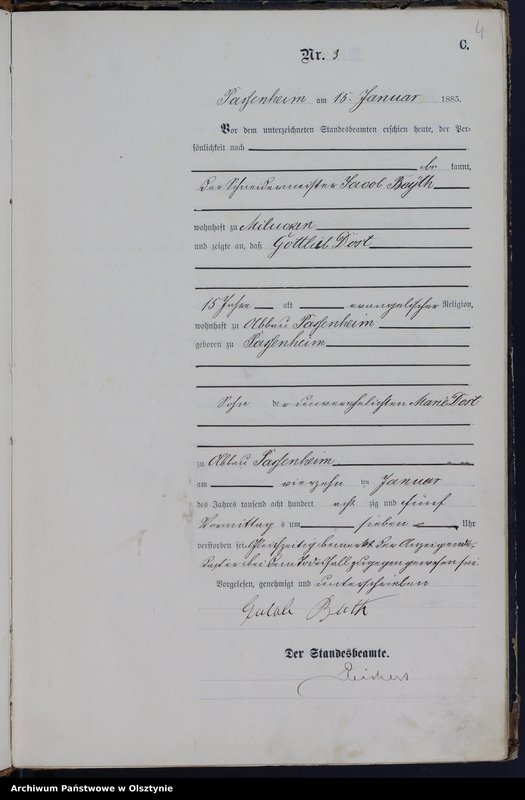 4
C.
Nr. 9
Passenheim am 15 Januar 1885.
Vor dem unterzeichneten Standesbeamten erschien heute, der Per-
sönlichkeit nach
be kannt,
der Schneidermeister Jacob
wohnhaft zu
und zeigte an, daß Gottlieb Dost
15 Jahre alt evangelischer Religion,
wohnhaft zu Abbau Passenheim
geboren zu Passenheim
Sohn der unverehelichten Marie Dost
zu Abbau Passenheim
am vierzehn ten Januar
des Jahres tausend acht hundert acht zig und fünf
Vormittag s um sieben Uhr
verstorben sei. Gleichzeitig bemerkt der Anzeigende,
daß er bei dem Todesfall zugegen gewesen sei.
Vorgelesen, genehmigt und unterschrieben
Der Standesbeamte.
Archiwum Państwowe w Olsztynie